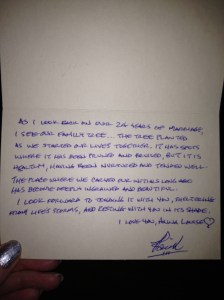 AS I LOOK BACK ON OUR 26 YEARS OF MARRIAGE,
I SEE OUR FAMILY TREE... THE TREE PLANTED
AS WE STARTED OUR LIVES TOGETHER. IT HAS SPOTS
WHERE IT HAS BEEN PRUNED AND BRUISED, BUT IT IS
HEALTHY, HAVING BEEN NURTURED AND TENDED WELL-
THE PLACE WHERE WE CARVED OUR INITIALS LONG AGO
HAS BECOME DEEPLY INGRAINED AND BEAUTIFUL.
I LOOK FORWARD TO TENDING IT WITH YOU,
FROM LIFE'S STORMS, AND RESTING WITH YOU IN ITS SHADE.
I LOVE YOU, LOUISE